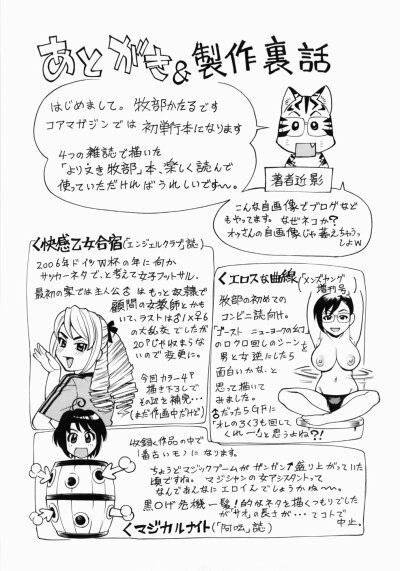 あとがき&製作裏話
はじめまして。牧部かたるです
コアマガジンでは初単行本になります
4つの雑誌で描いた
「より文き牧部」本、楽しく読んで
使っていただければうれしいです〜。
著者近影
こんな自画像でブログなど
もやってます。なぜネコか?
オッさんの自画像じゃ萎えちゃう。
しょw
く快感乙女合宿(エンジェルクラブ誌)
2006年ドイツW杯の年に向か
サッカーネタで、と考えて女子フットサル。
最初の案では主人公♂はもっと奴隷で
顧問の女教師とかも
いて、ラストは♂1×♀6
の大乱交でしたが
20Pじゃ収まらな
いので変更に。
今回カラー4P
描き下ろしで
その辺を補完…
(まだ作画中だけど)
くエロスな曲線(メンズヤング
増刊号)
牧部の初めての
コンビニ誌向け。
「ゴースト ニューヨークの幻」
のロクロ回しのシーンを
男と女逆にしたら
面白いかな…と
思って描いて
みました。
♂だったらGFに
「オレのろくろも回して
くれー!」と思うよね?!
収録作品の中で
1番古いモノになります。
ちょうどマジックブームがガンガン盛り上がっていた
頃ですね。マジシャンの女アシスタントって
なんであんなにエロイんでしょうかね〜。
黒○げ危機一髪!的なネタを描くつもりでした
が「サオ」の長さが…てコトで
中止。
くマジカルナイト(「阿吽」誌)